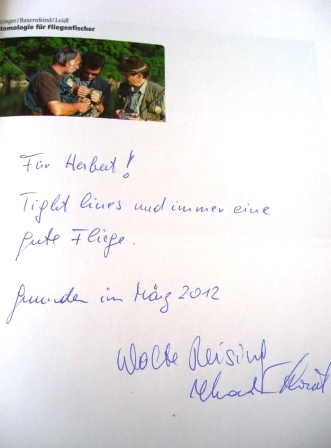 isinger/Bauernfeind/Loidl
tomologie für Fliegenfischer
Für Herbert!
Tight lines und immer eine
gute Fliege.
Gmunden im März 2012